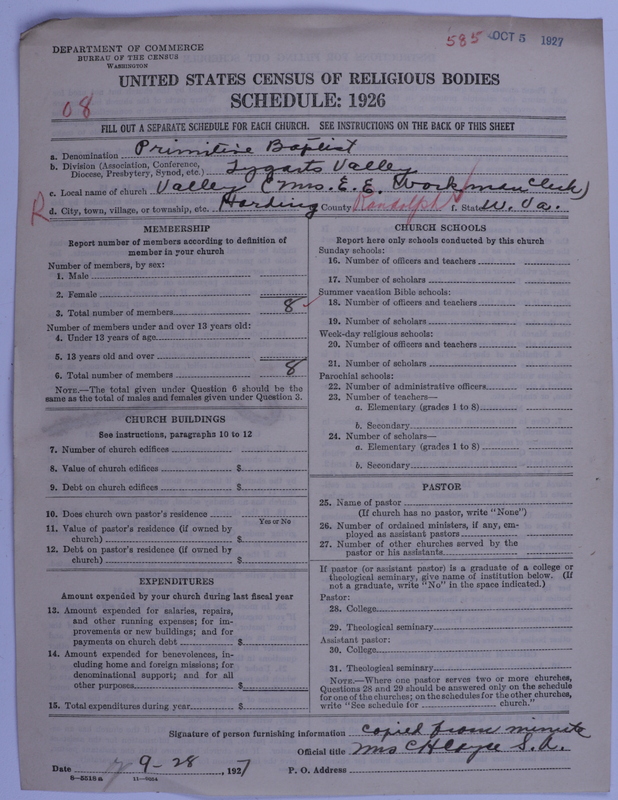 DEPARTMENT OF COMMERCE
BUREAU OF THE CENSUS
WASHINGTON
585 OCT 5 1927
UNITED STATES CENSUS OF RELIGIOUS BODIES
SCHEDULE: 1926
08
FILL OUT A SEPARATE SCHEDULE FOR EACH CHURCH. SEE INSTRUCTIONS ON THE BACK OF THIS SHEET
a. Denomination Primitive Baptist
b. Division (Association, Conference, Diocese, Presbytery, Synod, etc.) Tygarts Valley
c. Local name of church Valley (Mrs. E. E. Workman Clerk)
R d. City, town, village, or township, etc. Harding County Randolph f. State W. Va.
MEMBERSHIP
Report number of members according to definition of
member in your church
Number of members, by sex:
1. Male
2. Female
3. Total number of members 8
Number of members under and over 13 years old:
4. Under 13 years of age
5. 13 years old and over
6. Total number of members 8
NOTE.—The total given under Question 6 should be the
same as the total of males and females given under Question 3.
CHURCH BUILDINGS
See instructions, paragraphs 10 to 12
7. Number of church edifices
8. Value of church edifices $
9. Debt on church edifices $
10. Does church own pastor's residence
Yes or No
11. Value of pastor's residence (if owned by
church) $
12. Debt on pastor's residence (if owned by
church) $
EXPENDITURES
Amount expended by your church during last fiscal year
13. Amount expended for salaries, repairs,
and other running expenses; for im-
provements or new buildings; and for
payments on church debt $
14. Amount expended for benevolences, in-
cluding home and foreign missions; for
denominational support; and for all
other purposes $
15. Total expenditures during year $
CHURCH SCHOOLS
Report here only schools conducted by this church
Sunday schools:
16. Number of officers and teachers
17. Number of scholars
Summer vacation Bible schools:
18. Number of officers and teachers
19. Number of scholars
Week-day religious schools:
20. Number of officers and teachers
21. Number of scholars
Parochial schools:
22. Number of administrative officers
23. Number of teachers—
a. Elementary (grades 1 to 8)
b. Secondary
24. Number of scholars—
a. Elementary (grades 1 to 8)
b. Secondary
PASTOR
25. Name of pastor
(If church has no pastor, write "None")
26. Number of ordained ministers, if any, em-
ployed as assistant pastors
27. Number of other churches served by the
pastor or his assistants
If pastor (or assistant pastor) is a graduate of a college or
theological seminary, give name of institution below. (If
not a graduate, write "No" in the space indicated.)
Pastor:
28. College
29. Theological seminary
Assistant pastor:
30. College
31. Theological seminary
NOTE.—Where one pastor serves two or more churches,
Questions 28 and 29 should be answered only on the schedule
for one of the churches; on the schedules for the other churches,
write "See schedule for church."
Signature of person furnishing information copied from minute
Official title Mrs C H Cayce S. A.
Date 9-28, 1927 P. O. Address
8-5518a 11-9054